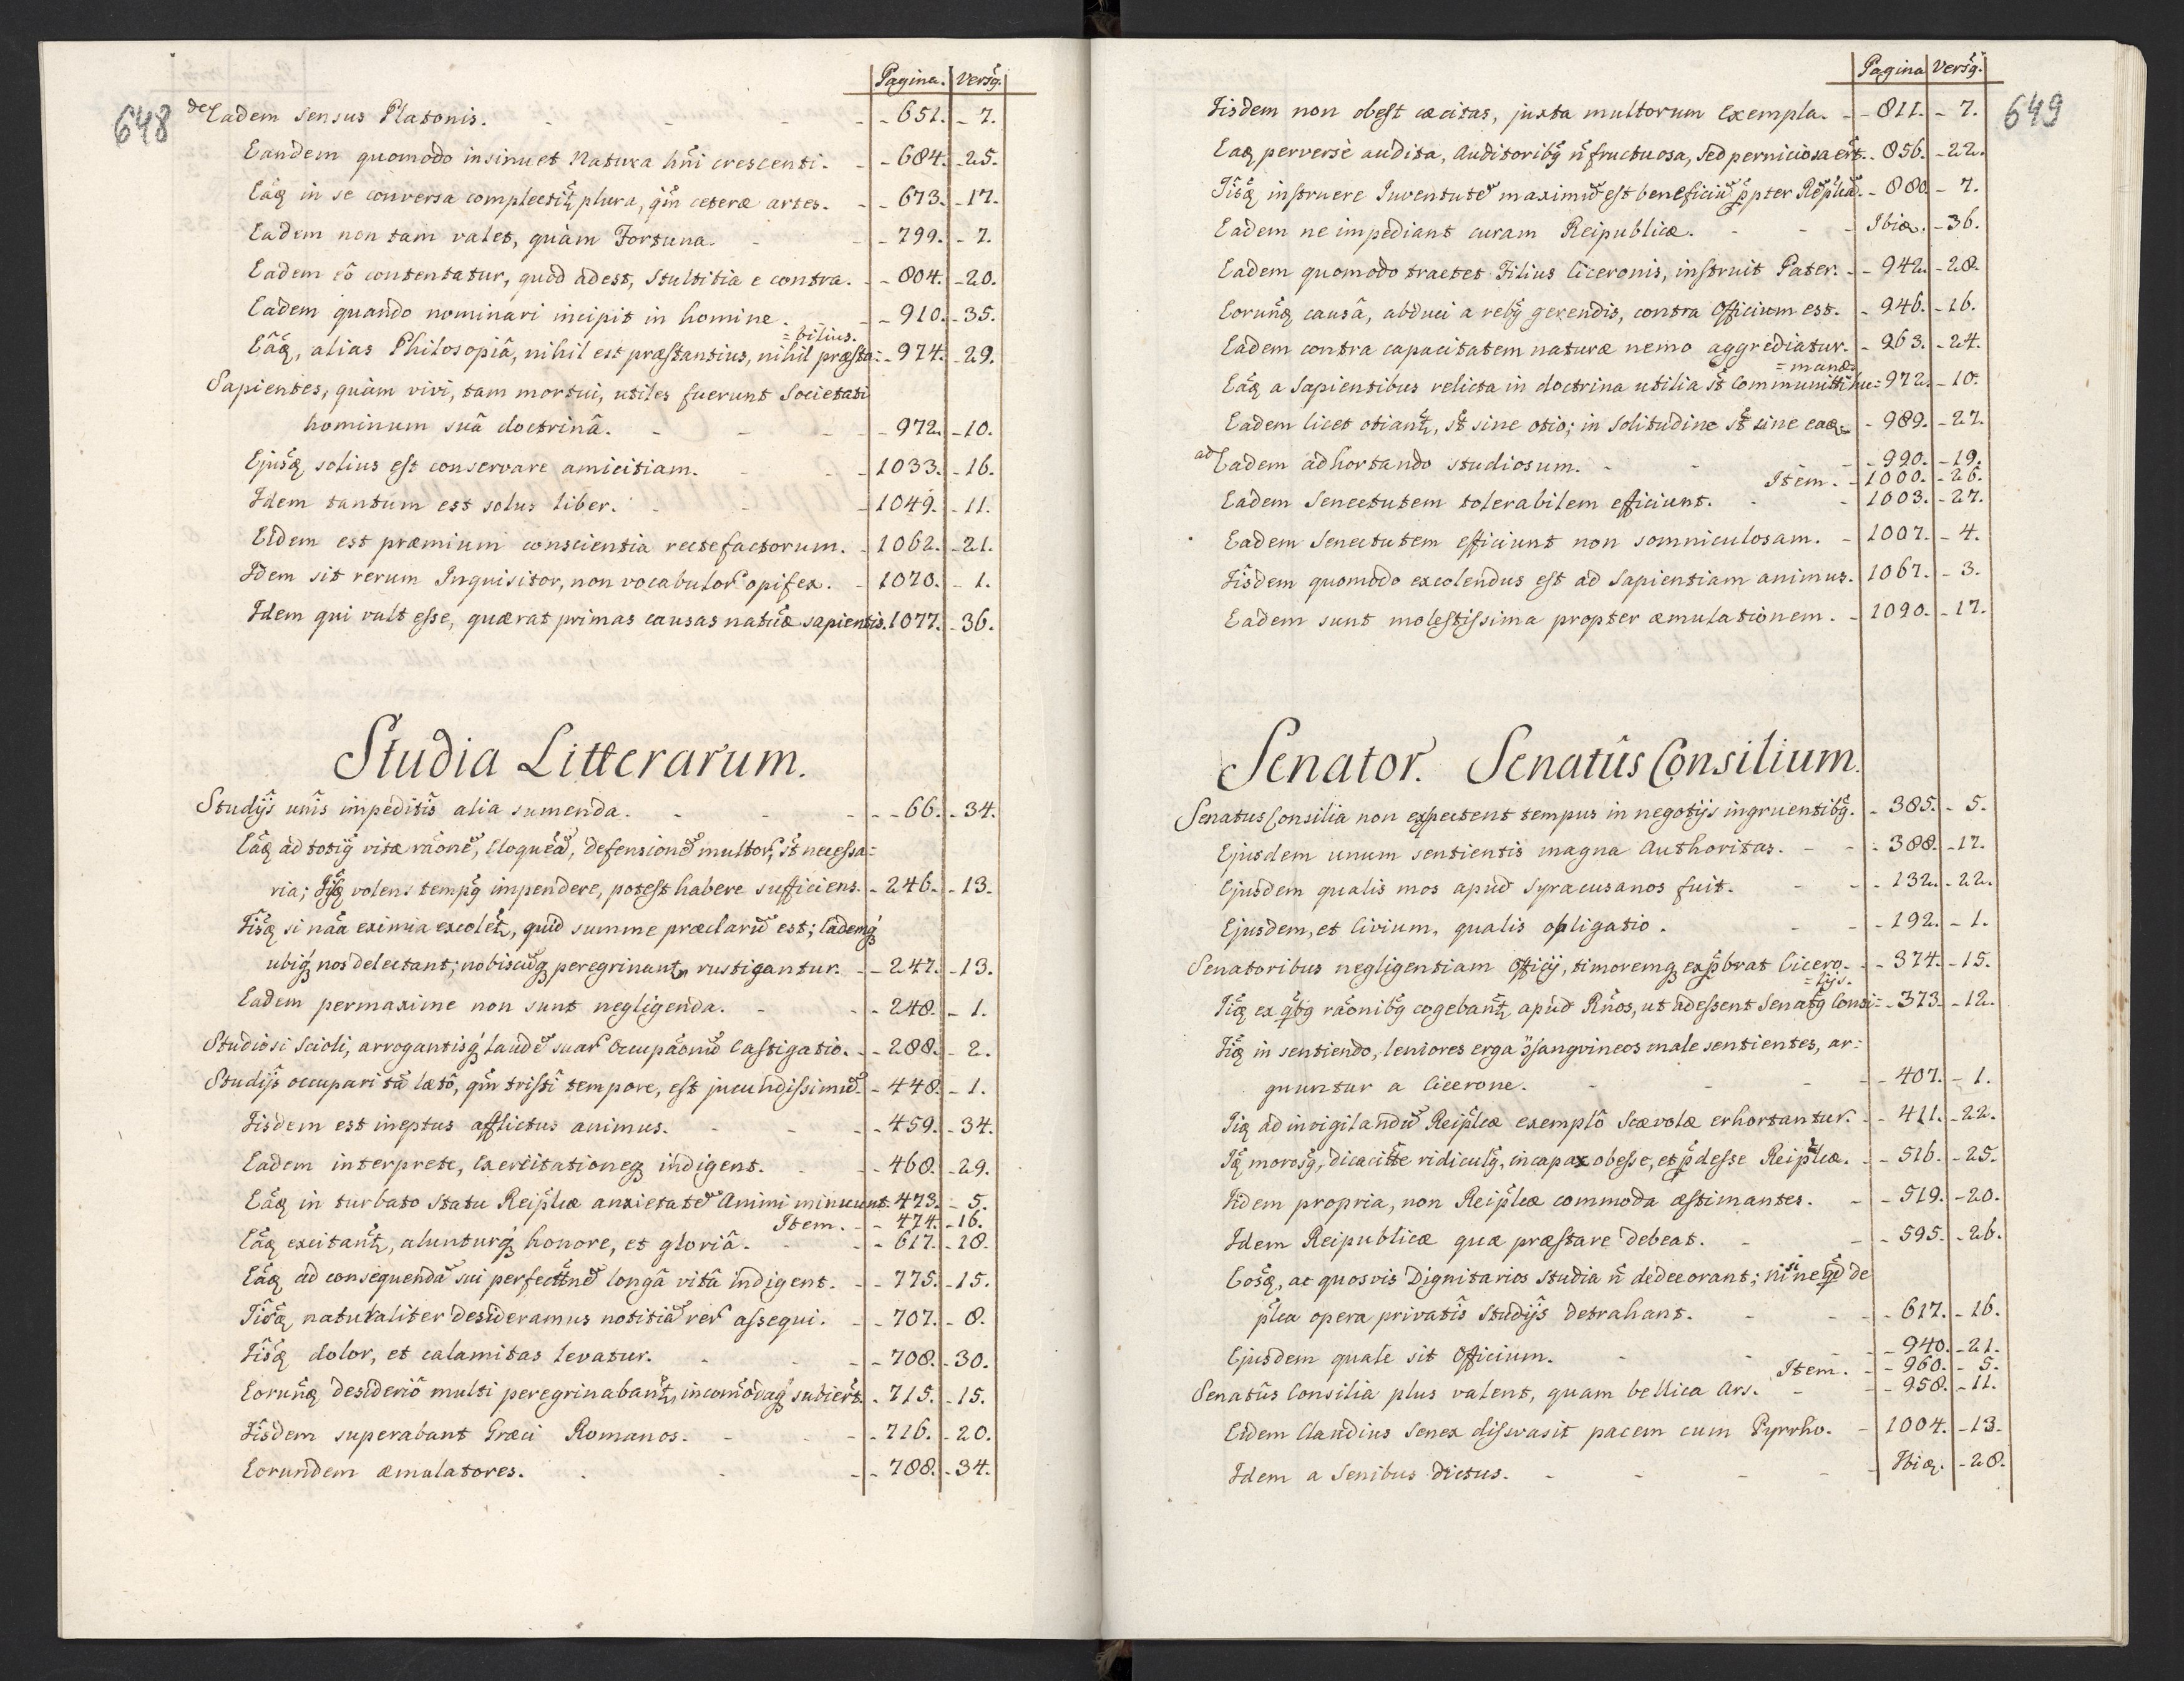 Pagina. Versꝰ.
648
de Eadem sensus Platonis. - 651. - 7.
Eandem quomodo insinuet Natura hñi crescenti. - 684. - 25.
Eaꝫ in se conversa complectit̃, plura, qm̃ ceteræ artes. - 673. - 17.
Eadem non tam valet, quàm Fortuna. - 799. - 7.
Eadem eô contentatur, quod adest, Stultitia e contra. - 804. - 20.
Eadem quando nominari incipit in homine. - 910. - 35.
=bilius.
Eâꝫ, alias Philosopiâ, nihil est præstantius, nihil præsta= - 974. - 29.
Sapientes, quàm vivi, tam mortui, utiles fuerunt Societati
hominum suâ doctrinâ. - 972. - 10.
Ejusꝫ solius est conservare amicitiam. - 1033. - 16.
Idem tantum est solus liber. - 1049. - 11.
Eidem est præmium conscientia rectefactorum. - 1062. - 21.
Idem sit rerum Inquisitor, non vocabulor̃ opifex. - 1070. - 1.
Idem qui vult esse, quærat primas causas natũæ sapientis. 1077. - 36.
Studia Litterarum.
Studijs unîs impeditîs alia sumenda. - 66. - 34.
Eaꝫ ad totiꝰ vitæ rãonẽ, Eloquẽã, defensionẽ multor̃, st̃ necessa=
ria; Ijsꝫ volens tempꝰ impendere, potest habere sufficiens. - 246. - 13.
Iisꝫ si nãa eximia excolet̃, quid summe præclarũ est; Eademqꝫ
ubiqꝫ nos delectant; nobiscũqꝫ peregrinant̃, rustigantur. - 247. - 13.
Eadem permaxime non sunt negligenda. - 248. - 1.
Studiosi Scioli, arrogantisqꝫ laudẽ suar̃ Occupãonũ Castigatio. - 288. - 2.
Studijs occupari tã lætô, qm̃ tristî tempore, est jucundissimũ. - 448. - 1.
Iisdem est ineptus afflictus animus. - 459. - 34.
Eadem interprete, Exercitationeqꝫ indigent. - 468. - 29.
Eaꝫ in turbato Statu Reip̃licæ anxietatẽ Animi minuunt. 473. - 5.
Item. - 474. - 16.
Eaꝫ excitant̃, alunturqꝫ honore, et gloriâ. - 617. - 18.
Eaꝫ ad consequendã sui perfecttnẽ longâ vitâ indigent. - 775. - 15.
Iisꝫ naturaliter desideramus notitiã rer̃ assequi. - 707. - 8.
Iisꝫ dolor, et calamitas levatur. - 708. - 30.
Eorunꝫ desideriô multi peregrinabant̃, incom̃odaqꝫ subiert̃. - 715. - 15.
Iisdem superabant Græci Romanos. - 716. - 20.
Eorundem æmulatores. - 788. - 34.
Pagina Versꝰ.
649
Iisdem non obest cæcitas, juxta multorum Exempla. - 811. - 7.
Eaꝫ perversè audita, Auditoribꝰ ñ fructuosa, sed perniciosa er̃t. - 856. - 22.
Iisꝫ instruere Juventutẽ maximũ est beneficiũ p̃pter Reip̃licã. - 880. - 7.
Eadem ne impediant curam Reipublicæ. - Ibiꝫ. - 36.
Eadem quomodo tractet Filius Ciceronis, instruit Pater. - 942. - 28.
Eorunꝫ causâ, abduci a rebꝰ gerendis, contra Officium est. - 946. - 16.
Eadem contra capacitatem naturæ nemo aggrediatur. - 963. - 24.
=manæ
Eaꝫ a Sapientibus relicta in doctrina utilia st̃ Communitti hu= 972. - 10.
Eadem licet otiant̃, st̃ sine otio; in solitudine st̃ sine eaꝫ - 989. - 27.
ad Eadem adhortando studiosum. - 990. - 19.
Item. - 1000. - 26.
Eadem Senectutem tolerabilem efficiunt. - 1003. - 27.
Eadem Senectutem efficiunt non somniculosam. - 1007. - 4.
Iisdem quomodo excolendus est ad Sapientiam animus. 1067. - 3.
Eadem sunt molestissima propter æmulationem. - 1090. - 17.
Senator. Senatûs Consilium.
Senatus Consilia non expectent tempus in negotijs ingruentibꝰ. - 385. - 5.
Ejusdem unum sentientis magna Authoritas. - 388. - 17.
Ejusdem qualis mos apud Syracusanos fuit. - 132. - 22.
Ejusdem, et Civium, qualis obligatio. - 192. - 1.
Senatoribus negligentiam Officij, timoremqꝫ exp̃brat Cicero. - 374. - 15.
=lijs.
Iiꝫ ex qbꝰ rãonibꝰ cogebant̃, apud Rños, ut adessent Senatꝰ Consi= - 373. - 12.
Iiꝫ in sentiendo, leniores erga 9sangvineos male sentientes, ar=
guuntur a Cicerone. - 407. - 1.
Iiꝫ ad invigilandũ Reip̃licæ exemplô Scævolæ exhortantur. - 411. - 22.
Iꝫ morosꝰ, dicacitte ridiculꝰ, incapax obesse, et p̃desse Reip̃licæ. - 516. - 25.
Iidem propria, non Reip̃licæ commoda æstimantes. - 519. - 20.
Idem Reipublicæ quæ præstare debeat. - 595. - 26.
Eosꝫ, ac quosvis Dignitarios studia ñ dedecorant; nisi ne qd de
p̃lica opera privatîs Studijs detrahant. - 617. - 16.
Ejusdem quale sit Officium. - 940. - 21.
Item. - 960. - 5.
Senatûs Consilia plus valent, quam bellica Ars. - 958. - 11.
Eidem Claudius Senex disvasit pacem cum Pyrrho. - 1004. - 13.
Idem a Senibus dictus. - Ibiꝫ. - 28.